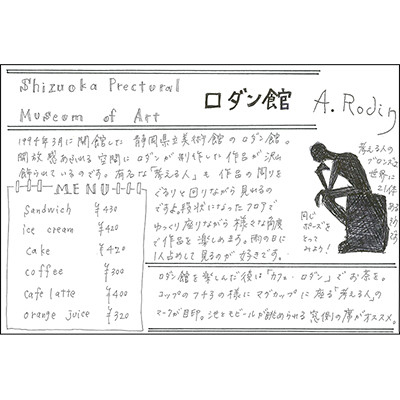 Shizuoka Prectural
Museum of Art
ロダン館
A. Rodin
1994年3月に開館した静岡県立美術館のロダン館。
開放感あふれる空間にロダンが制作した作品が沢山
飾られているのです。有名な「考える人」も作品の周りを
ぐるりと回りながら見れるの
ですよ。段状になったフロアで
ゆっくり座りながら様々な角度
で作品を楽しめます。雨の日に
1人占めして見るのが好きです。
考える人の
ブロンズは
世界に
21体
ある
同じ
ポーズを
とって
みよう!
MENU
Sandwich ¥430
ice cream ¥420
cake ¥420
coffee ¥300
cafe latte ¥400
orange juice ¥320
ロダン館を楽しんだ後は「カフェ・ロダン」でお茶を。
コップのフチ子の様にマグカップに座る「考える人」の
マークが目印。池とモビールが眺められる窓側の席がオススメ。